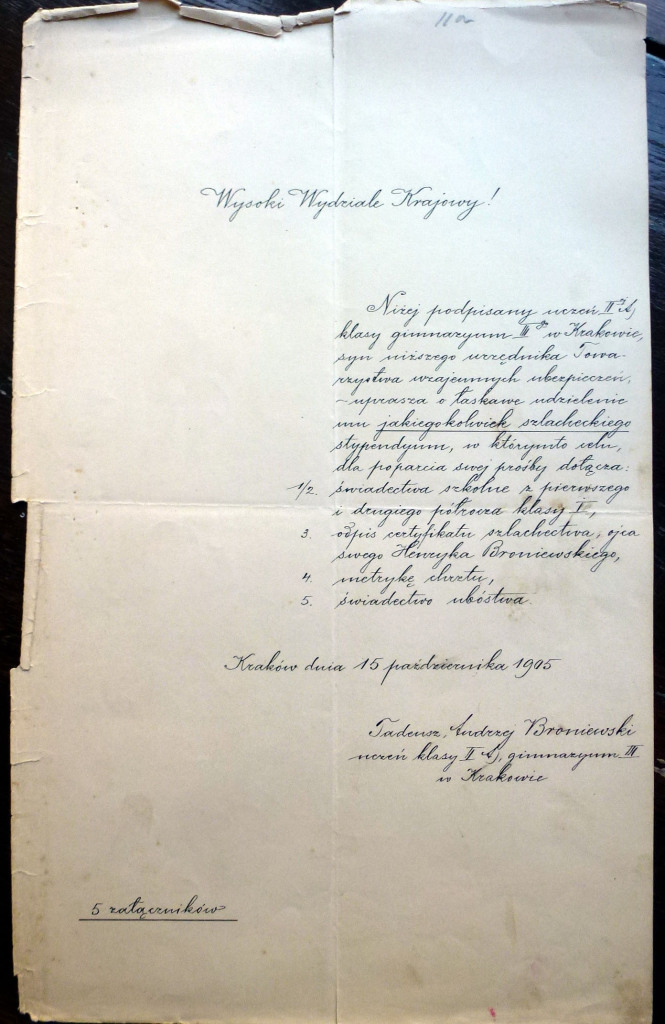 11a
Wysoki Wydziale Krajowy!
Niżej podpisany uczeń II A)
klasy gimnazyum III go w Krakowie,
syn niższego urzędnika Towa-
rzystwa wzajemnych ubezpieczeń,
- uprasza o łaskawe udzielenie
mu jakiegokolwiek szlacheckiego
stypendyum, w którymto celu,
dla poparcia swej prośby dołącza:
1/2. świadectwa szkolne z pierwszego
i drugiego półrocza klasy I,
3. odpis certyfikatu szlachectwa, ojca
swego Henryka Broniewskiego,
4. metrykę chrztu,
5. świadectwo ubóstwa.
Kraków dnia 15 października 1905
Tadeusz, Andrzej Broniewski
uczeń klasy II A), gimnazyum III
w Krakowie
5 załączników